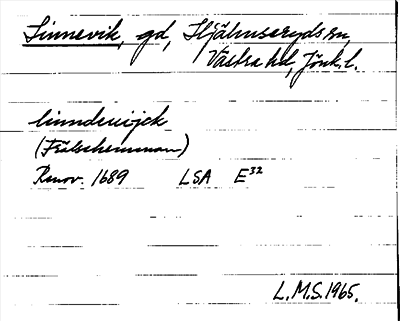 Linnevik, gd, Hjälmseryds sn,
Västra hd, Jönk. l.
linndewijck
(Frälsehemman)
Renov. 1689 LSA E32
L.M.S. 1965.